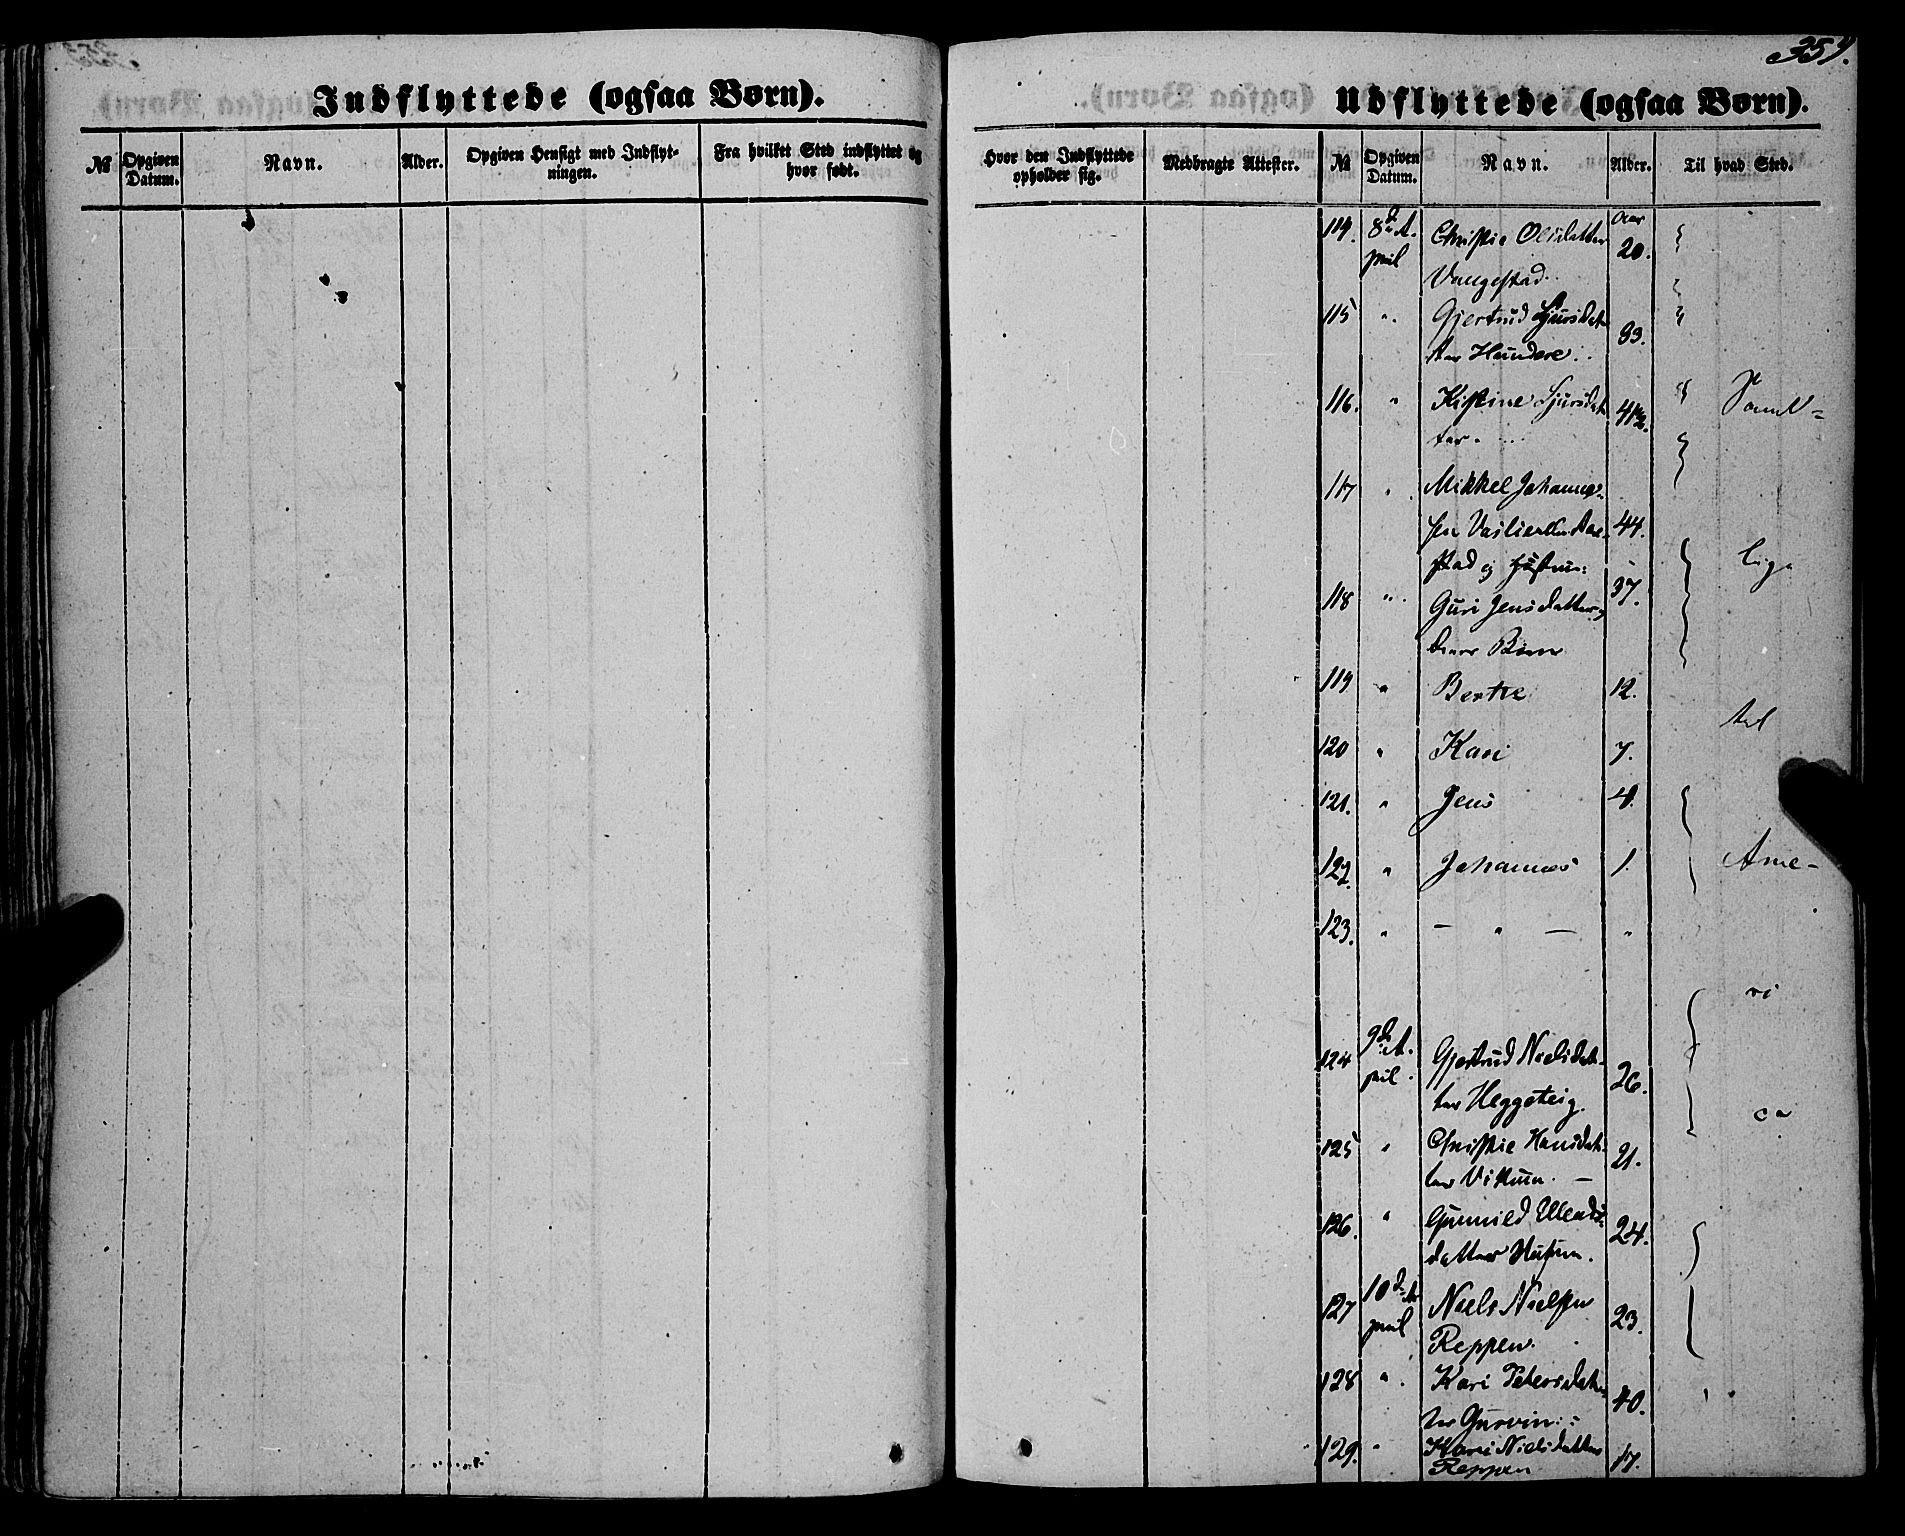 354.
Indflyttede (ogsaa Børn).
№
Opgiven Datum.
Navn.
Alder.
Opgiven Hensigt med Indflyt-
ningen.
Fra hvilket Sted indflyttet og
hvor født.
Udflyttede (ogsaa Børn).
Hvor den Indflyttede
opholder sig.
Medbragte Attester.
№
Opgiven Datum.
Navn.
Alder.
Til hvad Sted.
Aar
114. 8d A- Christie Olsdatter 20.
pril Vangestad.
115 " Gjertrud Sjursdat-
ter Hundere. 33.
116. " Kistine Sjursdat- 4 1/2.
ter.
Samt-
117 " Mikkel Johannes-
sen 44.
stad og Hustru:
lige
118 " Guri Jensdatter, 37.
deres Børn
119 " Berthe 12.
til
120 " Kari 7.
121. " Jens 4.
122. " Johannes 1.
Ame-
123. " — " — "
ri
124 9d A- Gjertrud Nielsdat-
pril ter Heggeteig. 26.
ca
125 " Christie Hansdat-
ter Vikum. — 21.
126. " Gunnild Ellends-
datter Husum. 24.
127 10d A- Niels Nielsen
pril Reppen. 23.
128 " Kari Petersdat-
ter Gurvin. 40.
129. " Kari Nielsdatter
Reppen 17.